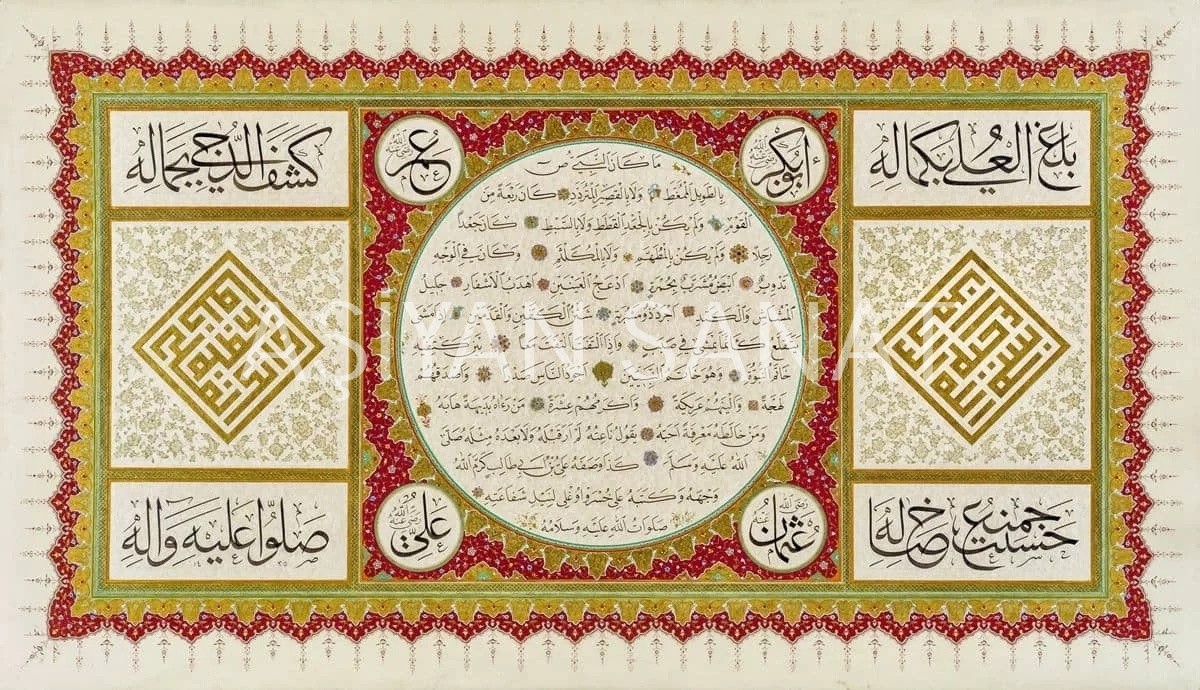 بلغ العلى بكماله
كشف الدجى بجماله
أبوبكر رضي الله عنه
عمر رضي الله عنه
ما كان النبي ص
بالطويل الممغط ولا بالقصير المتردد كان ربعة من
القوم ولم يكن بالجعد القطط ولا بالسبط كان جعدا
رجلا ولم يكن بالمطهم ولا بالمكلثم وكان في الوجه
تدوير أبيض مشرب بحمرة ادعج العينين اهدب الأشفار جليل
المشاش والكتد اجرد ذو مسربة شثن الكفين والقدمين إذا مشى
يتقلع كأنما يمشي في صبب وإذا التفت التفت معا بين كتفيه
خاتم النبوة وهو خاتم النبيين اجود الناس صدرا وأصدقهم
لهجة وألينهم عريكة وأكرمهم عشرة من رءاه بديهة هابه
ومن خالطه معرفة أحبه يقول ناعته لم أر قبله ولا بعده مثله صلى
الله عليه وسلم كذا وصفه علي بن أبي طالب كرم الله
وجهه وكتبه علي خسرو اوغلي لنيل شفاعته
صلوات الله عليه وسلامه
عثمان رضي الله عنه
علي رضي الله عنه
حسنت جميع خصاله
صلوا عليه وآله
AŞİYAN SANAT